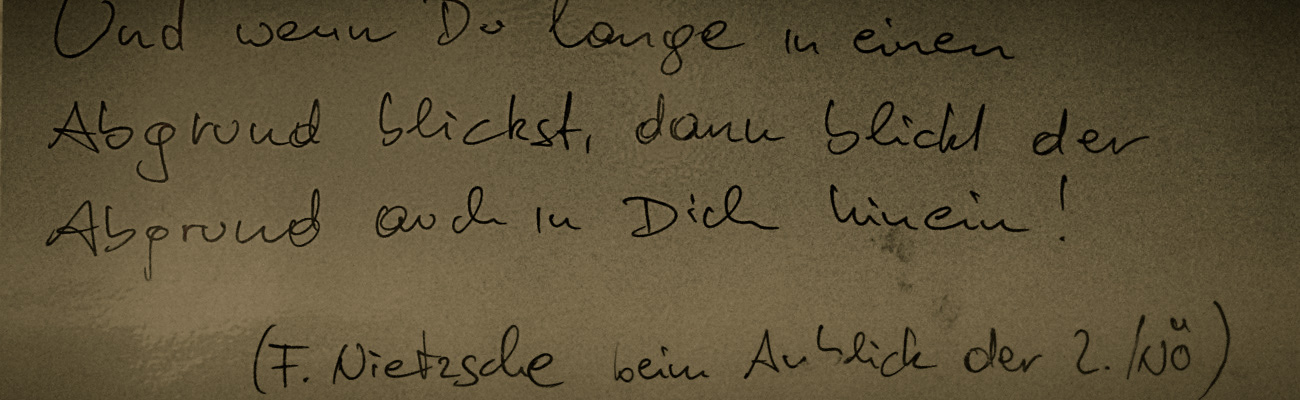 Und wenn Du lange in einen
Abgrund blickst, dann blickt der
Abgrund auch in Dich hinein!
(F. Nietzsche beim Anblick der 2./NÖ)